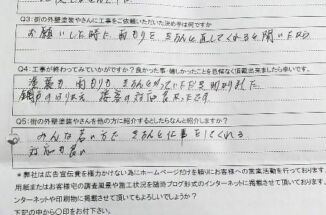 Q3: 街の外壁塗装やさんに工事をご依頼いただいた決め手は何ですか
お願いした時に 雨もりを きちんと直してくれると聞いたから
Q4: 工事が終わってみていかがですか？良かった事・嬉しかったことを忌憚なく頂戴出来ましたら幸いです。
雨もりが きちんと
対応
Q5: 街の外壁塗装やさんを他の方に紹介するとしたらなんと紹介しますか？
みんな若い方で きちんと仕事をしてくれる
対応が良い
＊弊社は広告宣伝費を極力かけない為にホームページがけを頼りにお客様への営業活動を行っております。
用紙またはお客様宅の調査風景や施工状況を随時ブログ形式のインターネットに掲載させて頂いております。
インターネットや印刷物に掲載させて頂いてもよろしいでしょうか？
下記の中から○印をお付下さい。